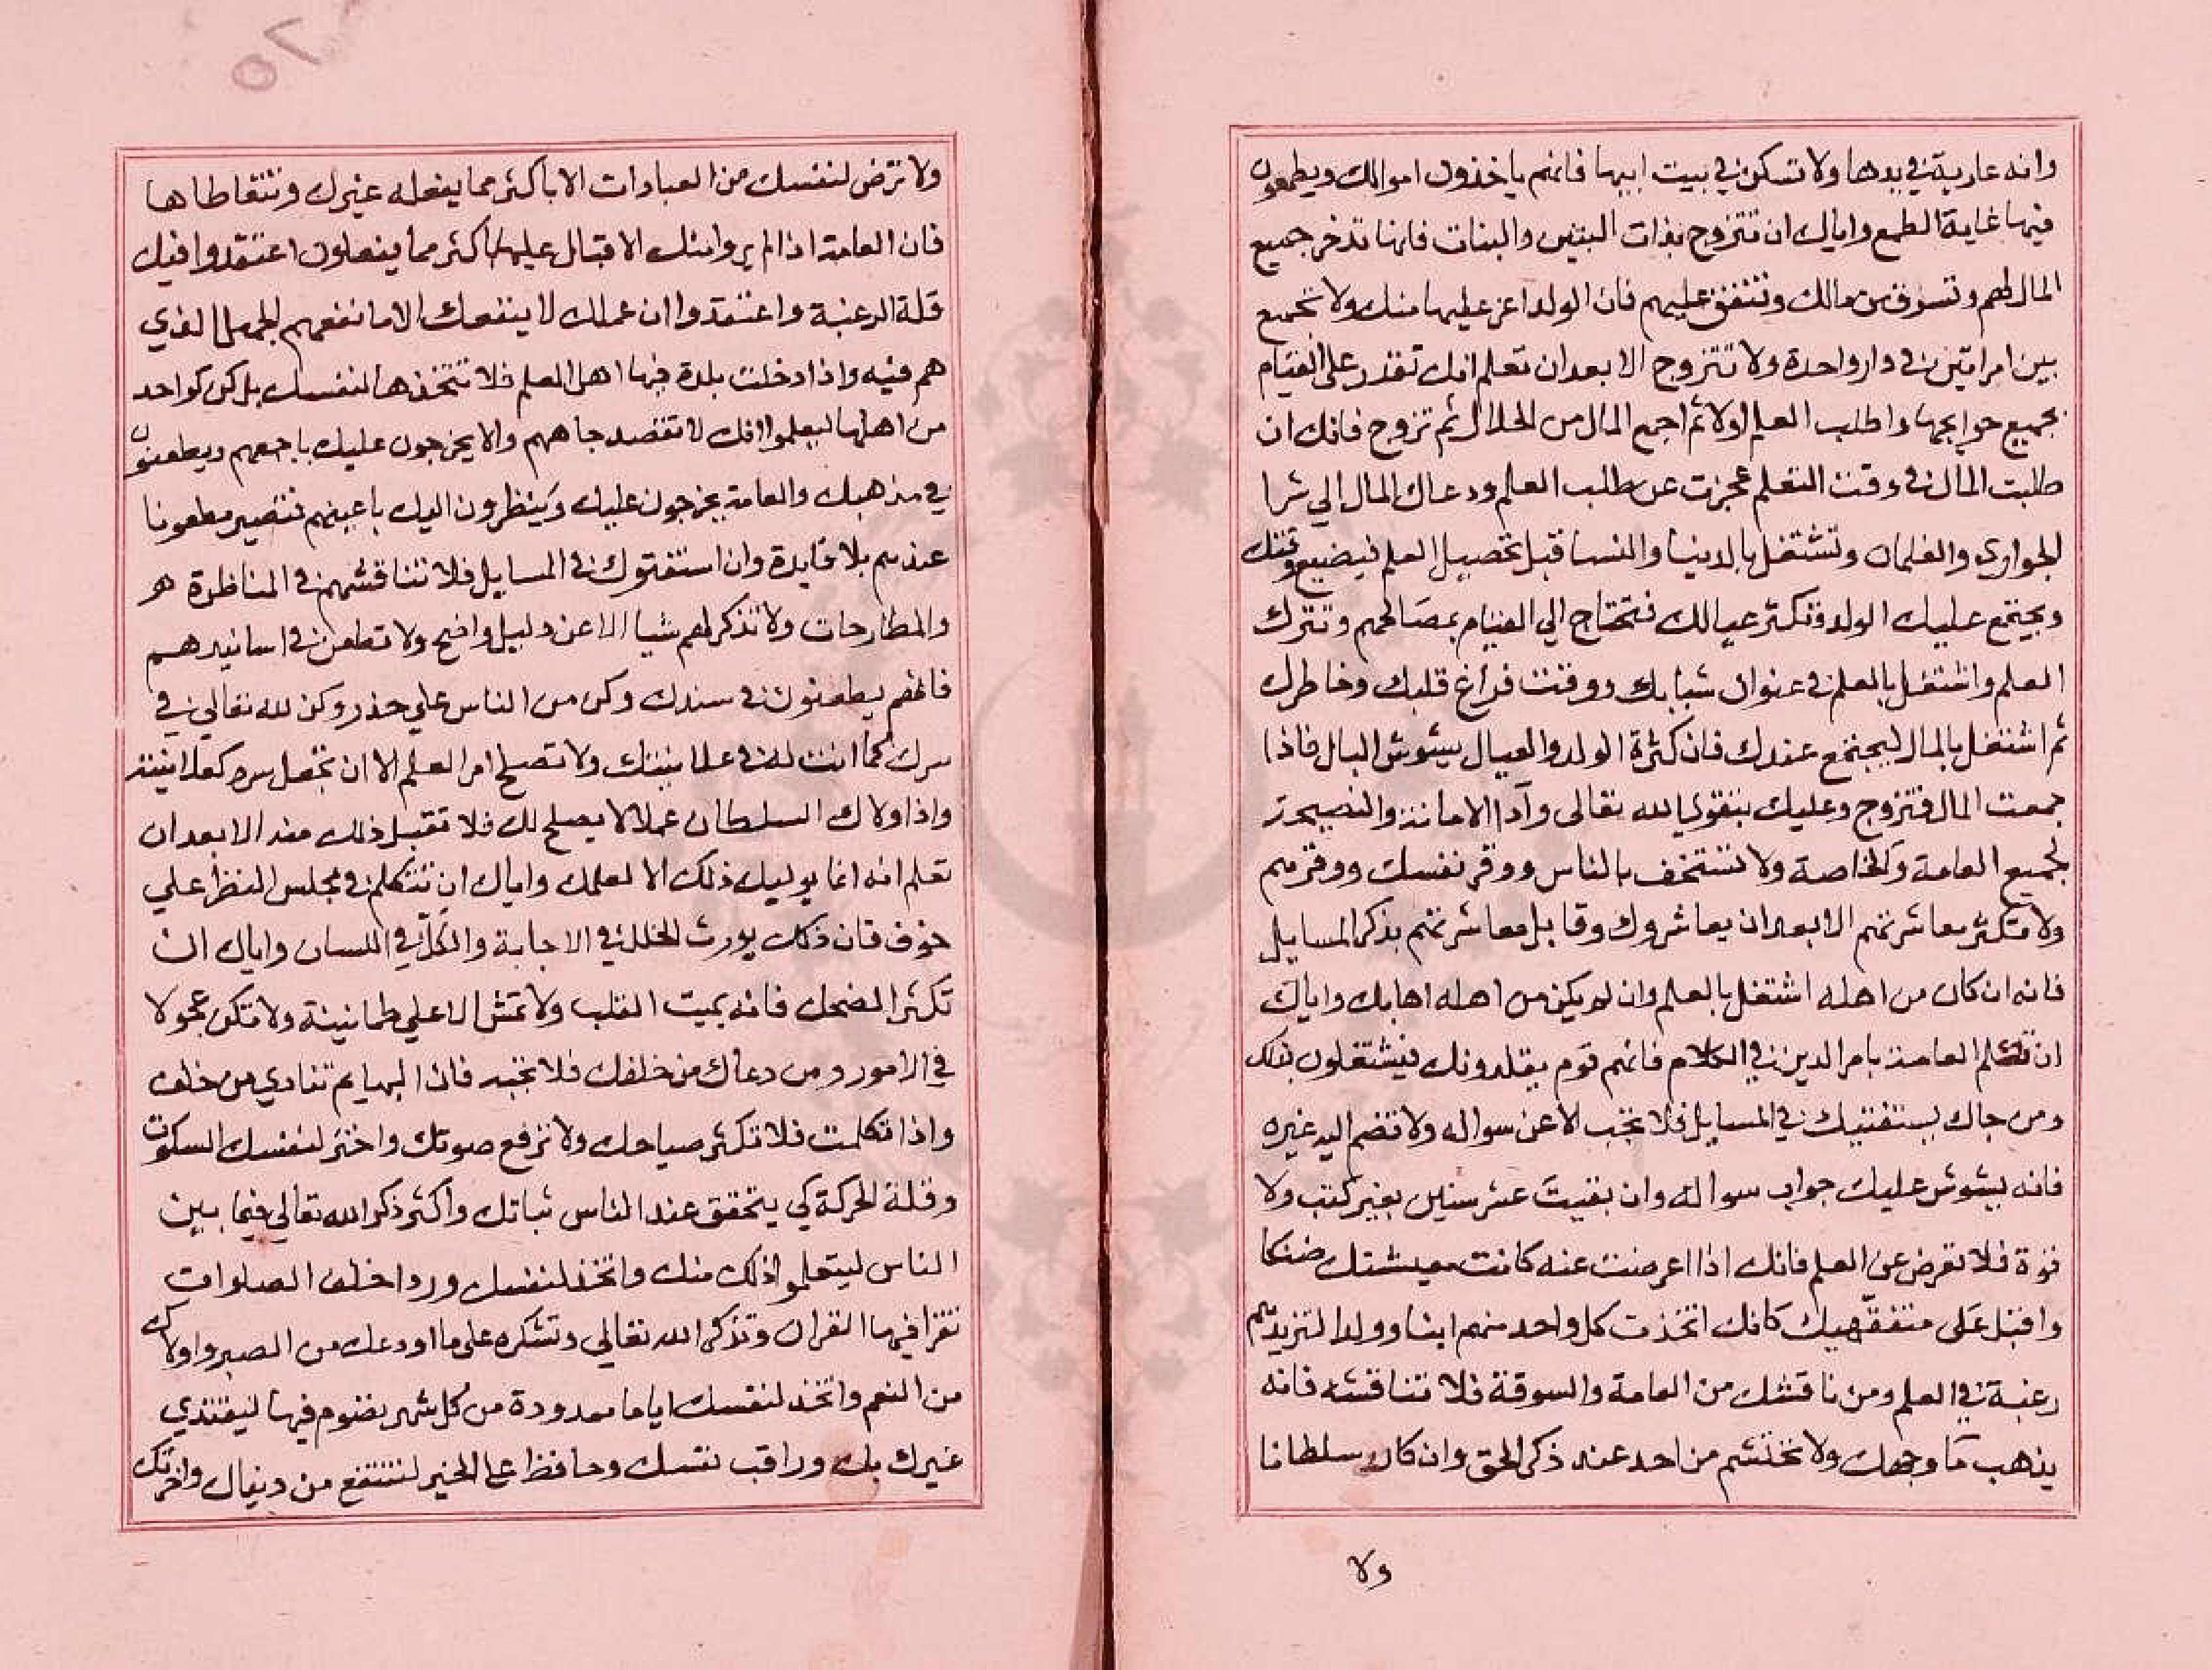 وانه عارية في يدها ولا تسكن في بيت ابيها فانهم ياخذون اموالك ويطمعون
فيها غاية الطمع واياك ان تتزوج بذات البنين والبنات فانها تدخر جميع
المال لهم وتسرق من مالك وتنفق عليهم فان الولد اعز عليها منك ولا تجميع
بين امراتين في دار واحدة ولا تتزوج الا بعد ان تعلم انك تقدر على القيام
بجميع حوايجها واطلب العلم اولا ثم اجمع المال من الحلال ثم تزوج فانك ان
طلبت المال في وقت التعلم عجزت عن طلب العلم ودعاك المال الي شرا
الجواري والغلمان وتشتغل بالدنيا والنسا قبل تحصيل العلم فيضيع وقتك
ويجتمع عليك الولد وتكثر عيالك فتحتاج الي القيام بمصالحهم وتترك
العلم واشتغل بالعلم في عنوان شبابك ووقت فراغ قلبك وخاطرك
ثم اشتغل بالمال ليجتمع عندك فان كثرة الولد والعيال يشوش البال فاذا
جمعت المال فتزوج وعليك بتقوي الله تعالى وآدا الامانة والنصيحة
لجميع العامة والخاصة ولا تستخف بالناس ووقر نفسك ووقرهم
ولا تكثر معاشرتهم الا بعد ان يعاشروك وقابل معاشرتهم بذكر المسايل
فانه ان كان من اهله اشتغل بالعلم وان لم يكن من اهله اهابك واياك
ان تكلم العامة بامر الدين في الكلام فانهم قوم يقلدونك فيشتغلون بذلك
ومن جاك يستفتيك في المسايل فلا تجب الا عن سواله ولا تضم اليه غيره
فانه يشوش عليك جواب سواله وان بقيت عشر سنين بغير كتب ولا
قوة فلا تعرض عن العلم فانك اذا اعرضت عنه كانت معيشتك ضنكا
واقبل على متفقهيك كانك اتخذت كل واحد منهم ابنا وولدا لتزيدهم
رغبة في العلم ومن ناقشك من العامة والسوقة فلا تناقشه فانه
يذهب مآ وجهك ولا تحتشم من احد عند ذكر الحق وان كان سلطانا
ولا
ولا ترض لنفسك من العبادات الا باكثر مما يفعله غيرك وتتعاطاها
فان العامة اذا لم يروا منك الاقبال عليها اكثر مما يفعلون اعتقدوا فيك
قلة الرغبة واعتقدوا ان عملك لا ينفعك الا ما نفعهم الجهل الذي
هم فيه واذا دخلت بلدة فيها اهل العلم فلا تتخذها لنفسك بل كن كواحد
من اهلها ليعلموا انك لا تقصد جاههم والا يخرجون عليك باجمعهم ويطعنون
في مذهبك والعامة يخرجون عليك وينظرون اليك باعينهم فتصير مطعونا
عندهم بلا فايدة وان استفتوك في المسايل فلا تناقشهم في المناظرة
والمطارحات ولا تذكر لهم شيا الا عن دليل واضح ولا تطعن في اسانيدهم
فانهم يطعنون في سندك وكن من الناس علي حذر وكن لله تعالي في
سرك كما انت له في علانيتك ولا تصلح امر العلم الا ان تجعل سره كعلانيته
واذا ولاك السلطان عملا لا يصلح لك فلا تقبل ذلك منه الا بعد ان
تعلم انه انما يوليك ذلك الا لعلمك واياك ان تتكلم في مجلس النظر علي
خوف فان ذلك يورث الخلل في الاجابة والكل في اللسان واياك ان
تكثر الضحك فانه يميت القلب ولا تمش الا علي طمانينة ولا تكن عجولا
في الامور ومن دعاك من خلفك فلا تجبه فان البهايم تنادي من خلف
واذا تكلمت فلا تكثر صياحك ولا ترفع صوتك واختر لنفسك السكوت
وقلة الحركة كي يتحقق عند الناس ثباتك واكثر ذكر الله تعالي فيما بين
الناس ليتعلموا ذلك منك واتخذ لنفسك وردا خلف الصلوات
تقرا فيها القران وتذكر الله تعالي وتشكره على ما اودعك من الصبر واولاك
من النعم واتخذ لنفسك اياما معدودة من كل شهر تصوم فيها ليقتدي
غيرك بك وراقب نفسك وحافظ على الخير لتنتفع من دنياك واخرتك